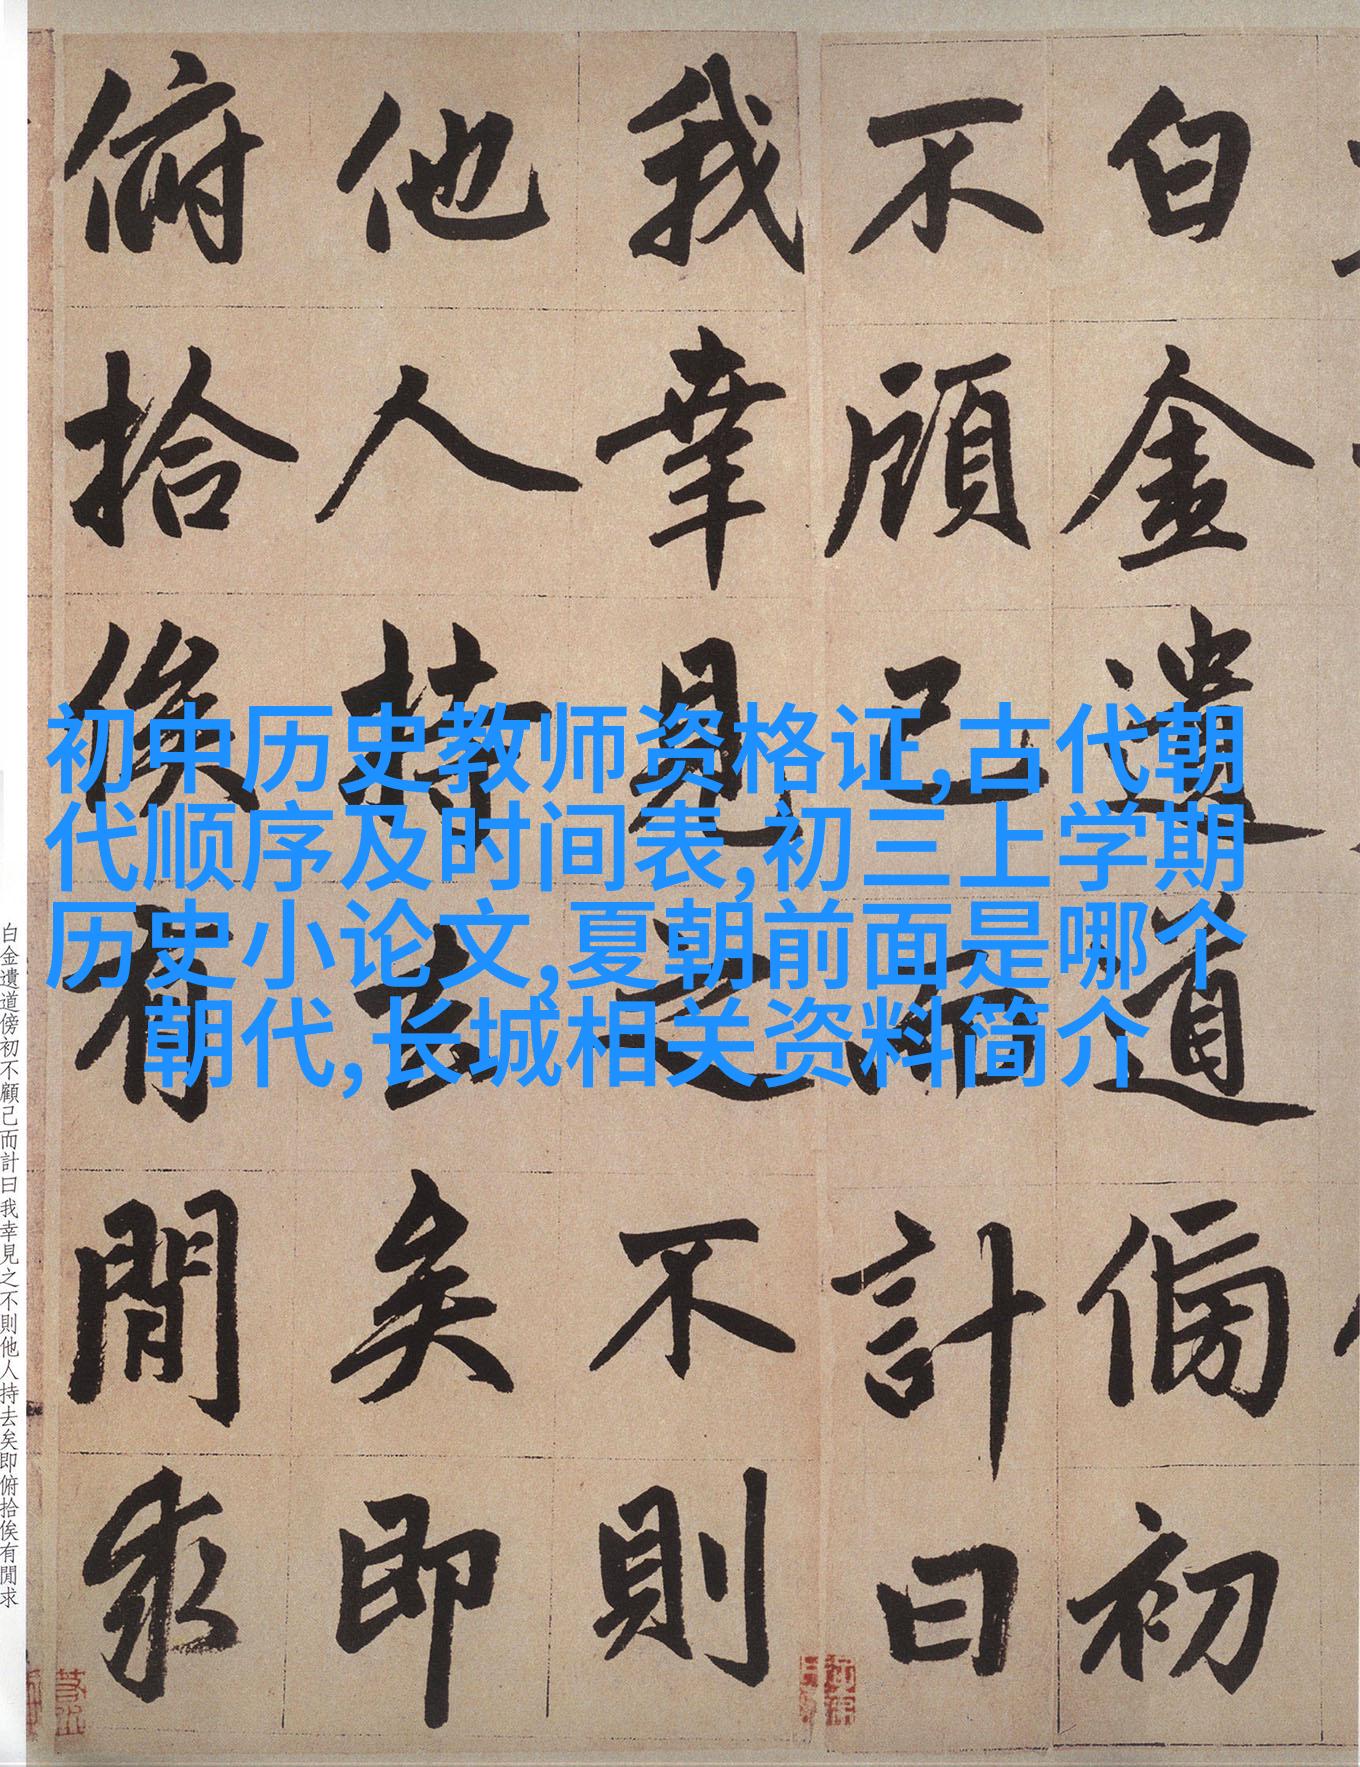 白金遺道傍初
不顧己而計曰
我幸見之不則
他人持去矣即
俯拾俟有閒求
初中历史教师资格证,古代朝
代顺序及时间表,初三上学期
历史小论文,夏朝前面是哪个
朝代,长城相关资料简介
白金遺道傍初不顧己而計曰我幸見之不則他人持去矣即俯拾俟有閒求